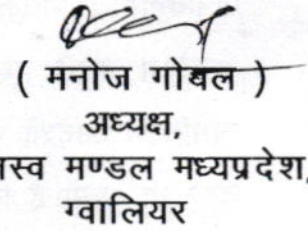 ( मनोज गोयल )
अध्यक्ष,
स्व मण्डल मध्यप्रदेश,
ग्वालियर